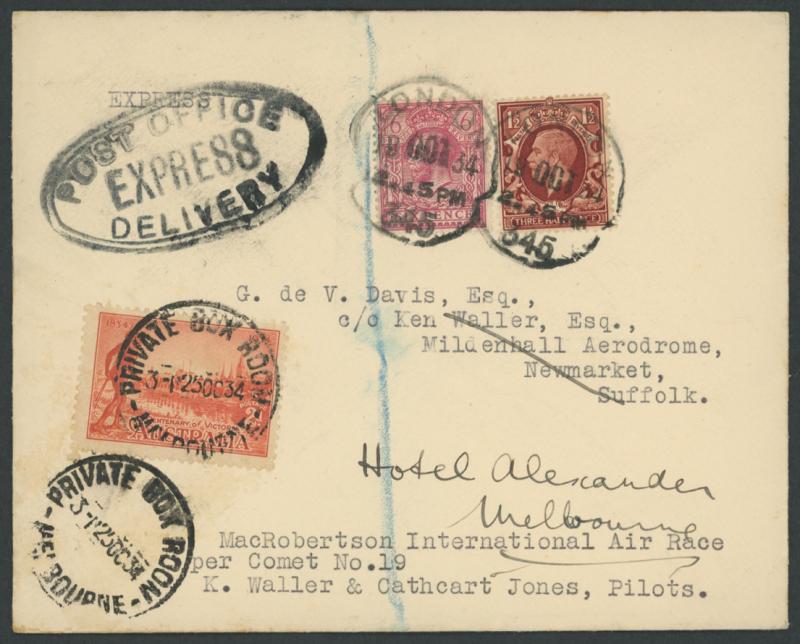 EXPRESS
POST OFFICE
EXPRESS
DELIVERY
LONDON
OCT 34
2.45PM
345
6
OCT
345
1½
THREE HALFPENCE
G. de V. Davis, Esq.,
c/o Ken Waller, Esq.,
Mildenhall Aerodrome,
Newmarket,
Suffolk.
1834
CENTENARY OF VICTORIA
AUSTRALIA
PRIVATE BOX ROOM
25OC34
MELBOURNE
Hotel Alexander
Melbourne
PRIVATE BOX ROOM
25OC34
MELBOURNE
MacRobertson International Air Race
per Comet No.19
K. Waller & Cathcart Jones, Pilots.